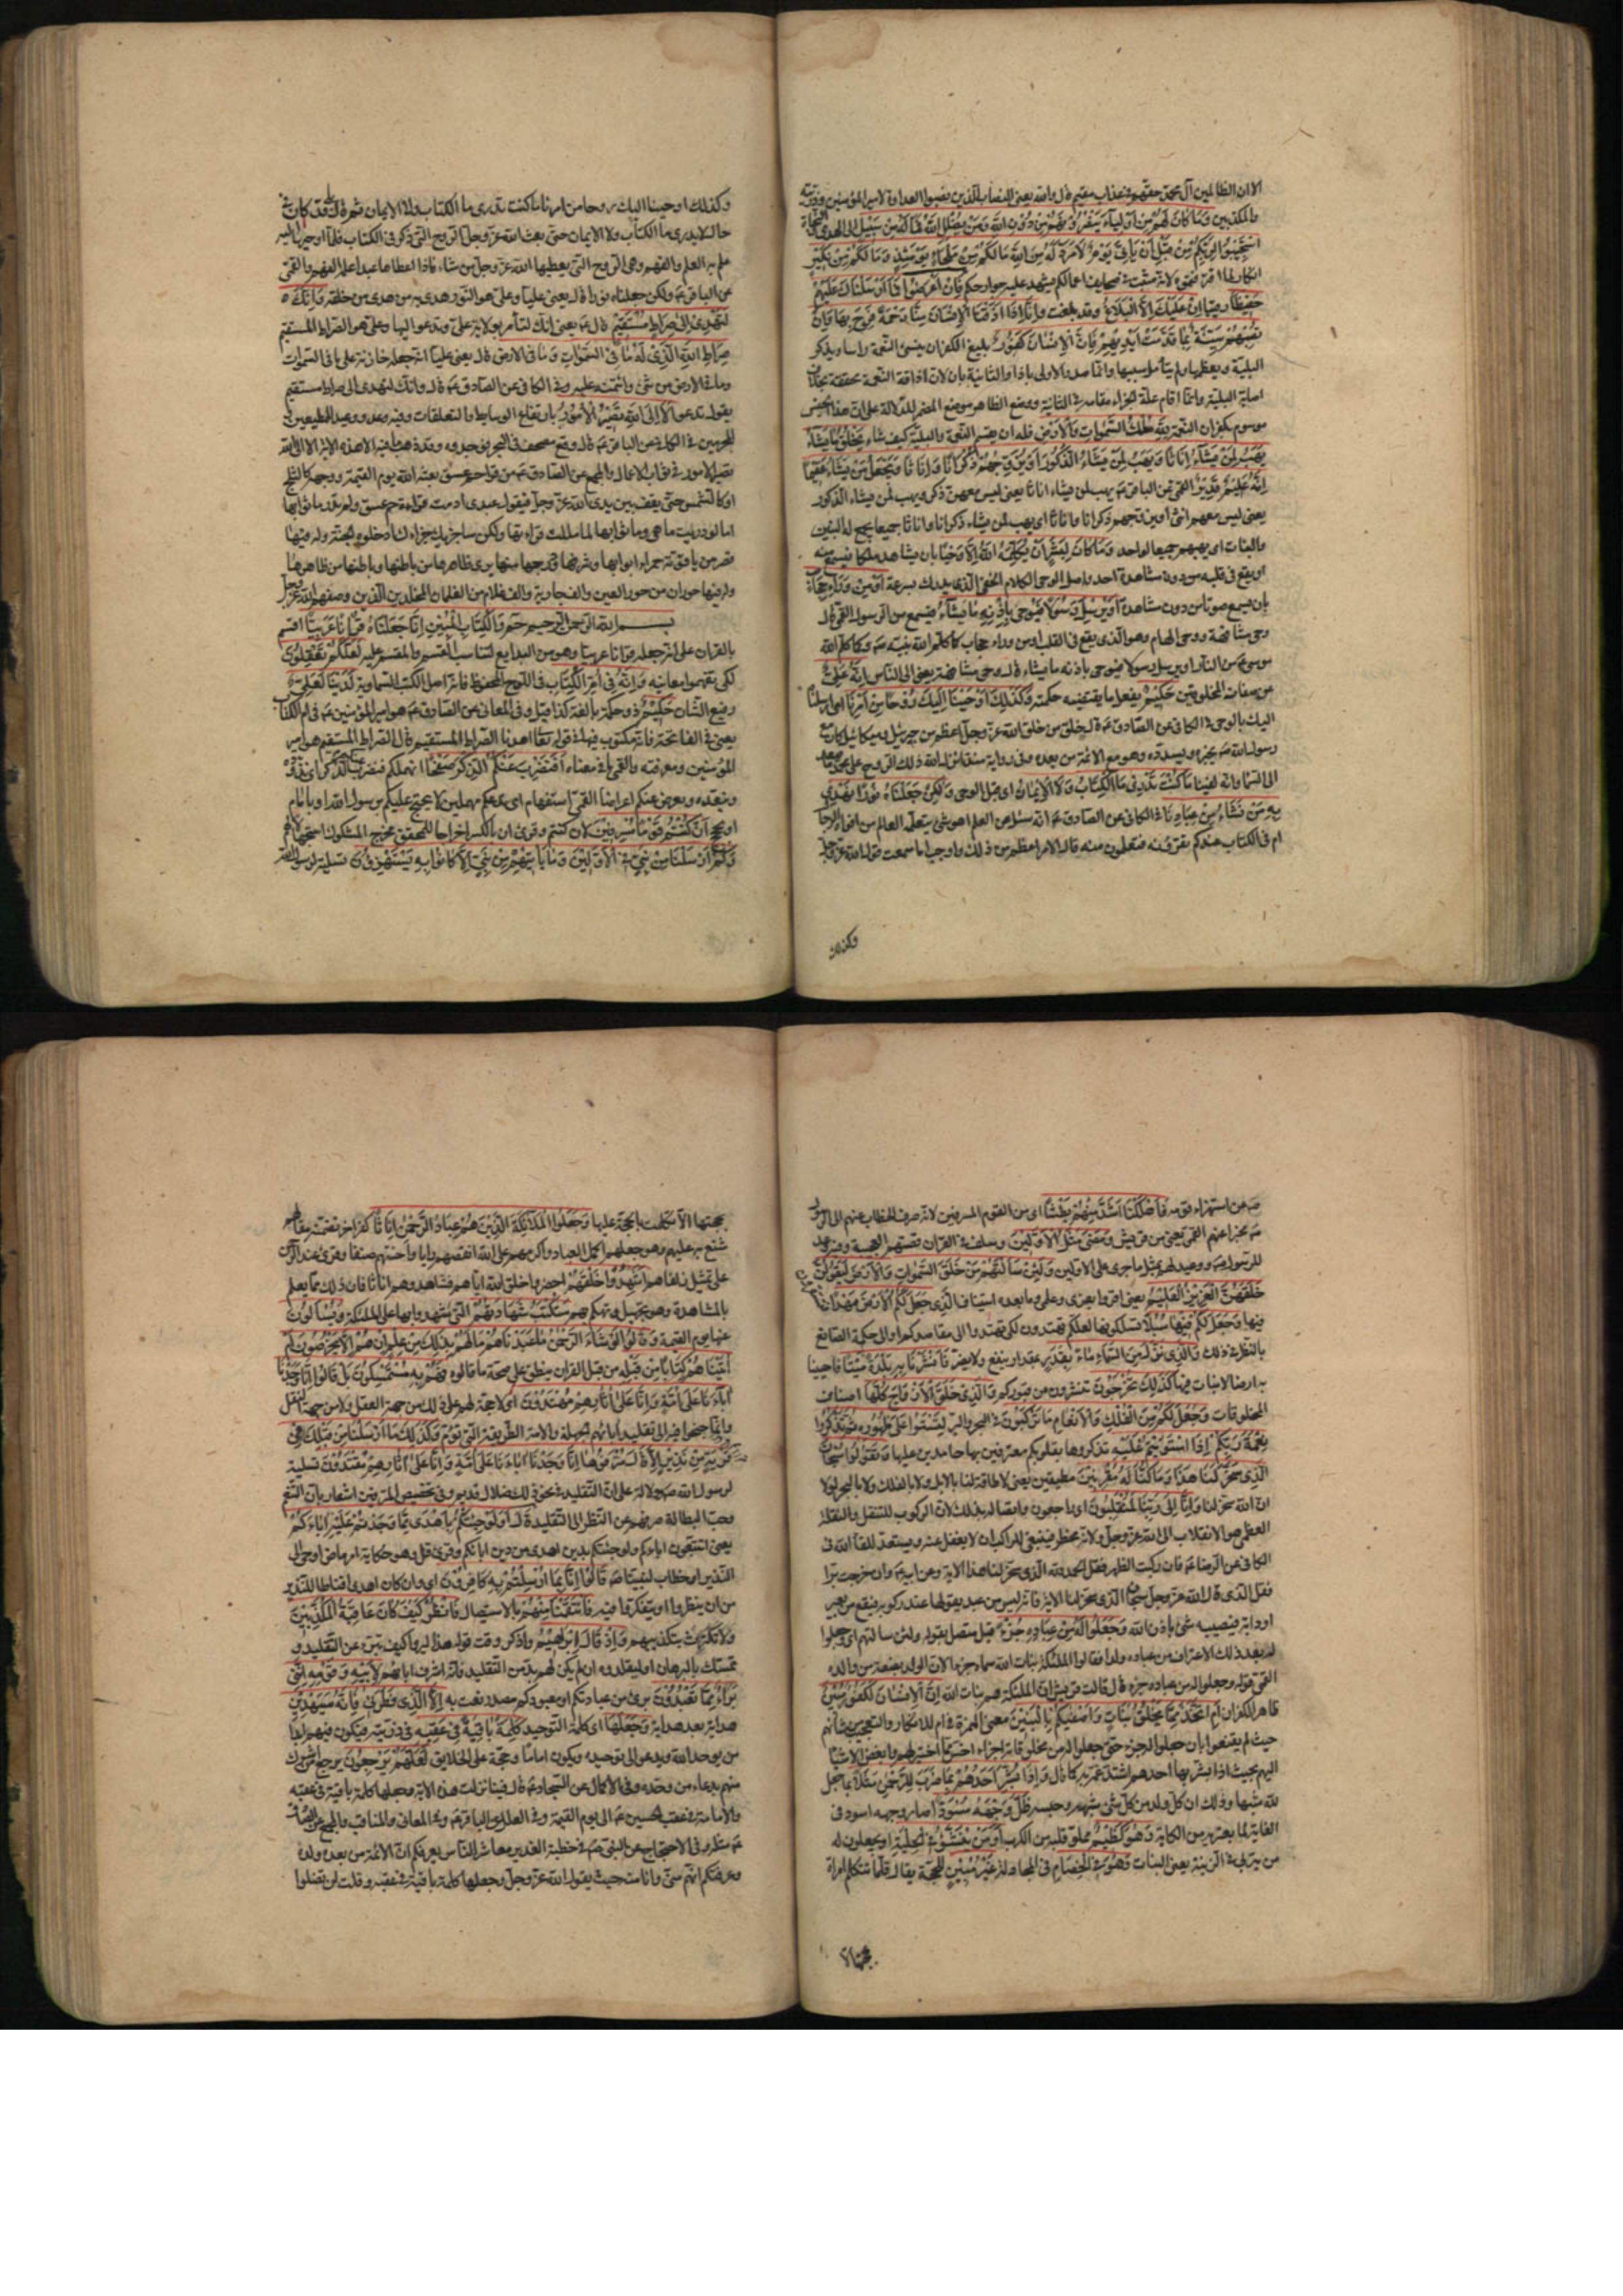 الا ان الظالمين آل محمد حقهم في عذاب مقيم قال والله يعني النصاب الذين نصبوا العداوة لامير المؤمنين وذريته
والمكذبين وَمَا كَانَ لَهُمْ مِنْ اَوْلِيَاءَ يَنْصُرُونَهُمْ مِنْ دُونِ اللهِ وَمَنْ يُضْلِلِ اللهُ فَمَا لَهُ مِنْ سَبِيلٍ الى الهدى والنجاة
اسْتَجِيبُوا لِرَبِّكُمْ مِنْ قَبْلِ اَنْ يَأْتِيَ يَوْمٌ لَا مَرَدَّ لَهُ مِنَ اللهِ مَا لَكُمْ مِنْ مَلْجَاءٍ يَوْمَئِذٍ وَمَا لَكُمْ مِنْ نَكِيرٍ
انكار لما اقترفتموه لانه مثبت في صحايف اعمالكم ويشهد عليه جوارحكم فَاِنْ اَعْرَضُوا فَمَا اَرْسَلْنَاكَ عَلَيْهِمْ
حَفِيظًا رقيبا اِنْ عَلَيْكَ اِلَّا الْبَلَاغُ وقد بلغت وَاِنَّا اِذَا اَذَقْنَا الْاِنْسَانَ مِنَّا رَحْمَةً فَرِحَ بِهَا وَاِنْ
تُصِبْهُمْ سَيِّئَةٌ بِمَا قَدَّمَتْ اَيْدِيهِمْ فَاِنَّ الْاِنْسَانَ كَفُورٌ بليغ الكفران ينسى النعمة راسا ويذكر
البلية ويعظمها ولم يتأمل سببها وانما صدر الاولى باذا والثانية بان لان اذاقة النعمة محققة بخلاف
اصابة البلية وانما اقام علة الجزاء مقامه في الثانية ووضع الظاهر موضع المضمر للدلالة على ان هذا الجنس
موسوم بكفران النعمة لِلهِ مُلْكُ السَّمٰوَاتِ وَالْاَرْضِ فله ان يقسم النعمة والبلية كيف شاء يَخْلُقُ مَا يَشَاءُ
يَهَبُ لِمَنْ يَشَاءُ اِنَاثًا وَيَهَبُ لِمَنْ يَشَاءُ الذُّكُورَ اَوْ يُزَوِّجُهُمْ ذُكْرَانًا وَاِنَاثًا وَيَجْعَلُ مَنْ يَشَاءُ عَقِيمًا
اِنَّهُ عَلِيمٌ قَدِيرٌ القمي عن الباقر ع يهب لمن يشاء اناثا يعني ليس معهن ذكر ويهب لمن يشاء الذكور
يعني ليس معهم انثى او يزوجهم ذكرانا واناثا اي يهب لمن يشاء ذكرانا واناثا جميعا يجمع له البنين
والبنات اي يهبهم جميعا لواحد وَمَا كَانَ لِبَشَرٍ اَنْ يُكَلِّمَهُ اللهُ اِلَّا وَحْيًا بان يشاهد ملكا فيسمع منه
او يقع في قلبه من دون مشاهدة احد واصل الوحي الكلام الخفي الذي يدرك بسرعة اَوْ مِنْ وَرَاءِ حِجَابٍ
بان يسمع صوتا من دون مشاهدة اَوْ يُرْسِلَ رَسُولًا فَيُوحِيَ بِاِذْنِهِ مَا يَشَاءُ فيسمع من الرسول القمي قال
وحي مشافهة ووحي الهام وهو الذي يقع في القلب او من وراء حجاب كما كلم الله نبيه ص وكما كلم الله
موسى ع من النار او يرسل رسولا فيوحي باذنه ما يشاء قال وحي مشافهة يعني الى الناس اِنَّهُ عَلِيٌّ
عن صفات المخلوقين حَكِيمٌ يفعل ما يقتضيه حكمته وَكَذٰلِكَ اَوْحَيْنَا اِلَيْكَ رُوحًا مِنْ اَمْرِنَا اي ارسلناه
اليك بالوحي في الكافي عن الصادق ع قال خلق من خلق الله عز وجل اعظم من جبرئيل وميكائيل كان مع
رسول الله ص يخبره ويسدده وهو مع الائمة من بعده وفي رواية منذ انزل الله ذلك الروح على محمد ما صعد
الى السماء وانه لفينا مَا كُنْتَ تَدْرِي مَا الْكِتَابُ وَلَا الْاِيمَانُ اي قبل الوحي وَلٰكِنْ جَعَلْنَاهُ نُورًا نَهْدِي
بِهِ مَنْ نَشَاءُ مِنْ عِبَادِنَا في الكافي عن الصادق ع انه سئل عن العلم اهو شيء يتعلمه العالم من افواه الرجال
ام في الكتاب عندكم تقرؤنه فتعلمون منه قال الامر اعظم من ذلك واوجب اما سمعت قول الله عز وجل
وكذلك
وكذلك اوحينا اليك روحا من امرنا ما كنت تدري ما الكتاب ولا الايمان ثم قال بلى قد كان في
حال لا يدري ما الكتاب ولا الايمان حتى بعث الله عز وجل الروح التي ذكر في الكتاب فلما اوحيها اليه
علم به العلم والفهم وهي الروح التي يعطيها الله عز وجل من شاء فاذا اعطاها عبدا علمه الفهم والقمي
عن الباقر ع ولكن جعلناه نورا قال يعني عليا وعلي هو النور هدى به من هدى من خلقه وَاِنَّكَ
لَتَهْدِي اِلٰى صِرَاطٍ مُسْتَقِيمٍ قال ع يعني انك لتأمر بولاية علي وتدعو اليها وعلي هو الصراط المستقيم
صِرَاطِ اللهِ الَّذِي لَهُ مَا فِي السَّمٰوَاتِ وَمَا فِي الْاَرْضِ قال يعني عليا انه جعله خازنه على ما في السموات
وما في الارض من شيء وائتمنه عليه وفي الكافي عن الصادق ع قال وانك لتهدي الى صراط مستقيم
يقول تدعو اَلَا اِلَى اللهِ تَصِيرُ الْاُمُورُ بارتفاع الوسايط والتعلقات وفيه وعد ووعيد للمطيعين و
المجرمين في الكافي عن الباقر ع قال وقع مصحف في البحر فوجدوه وقد ذهب ما فيه الا هذه الاية الا الى الله
تصير الامور في ثواب الاعمال والمجمع عن الصادق ع من قرأ حم عسق بعثه الله يوم القيمة ووجهه كالثلج
او كالشمس حتى يقف بين يدي الله عز وجل فيقول عبدي ادمت قراءة حم عسق ولم تدر ما ثوابها
اما لو دريت ما هي وما ثوابها لما مللت قراءتها ولكن ساجزيك جزاءك ادخلوه الجنة وله فيها
قصر من ياقوتة حمراء ابوابها وشرفها ودرجها منها يرى ظاهرها من باطنها وباطنها من ظاهرها
وله فيها حوران من حور العين والف جارية والف غلام من الغلمان المخلدين الذين وصفهم الله عز وجل
بسم الله الرحمن الرحيم حٰم وَالْكِتَابِ الْمُبِينِ اِنَّا جَعَلْنَاهُ قُرْاٰنًا عَرَبِيًّا اقسم
بالقران على انه جعله قرانا عربيا وهو من البدايع لتناسب القسم والمقسم عليه لَعَلَّكُمْ تَعْقِلُونَ
لكي تفهموا معانيه وَاِنَّهُ فِي اُمِّ الْكِتَابِ في اللوح المحفوظ فانه اصل الكتب السماوية لَدَيْنَا لَعَلِيٌّ
رفيع الشان حَكِيمٌ ذو حكمة بالغة كذا قيل وفي المعاني عن الصادق ع هو امير المؤمنين ع في ام الكتاب
يعني في الفاتحة فانه مكتوب فيها في قوله تعالى اهدنا الصراط المستقيم قال الصراط المستقيم هو امير
المؤمنين ومعرفته والقمي ما في معناه اَفَنَضْرِبُ عَنْكُمُ الذِّكْرَ صَفْحًا انهملكم فنضرب الذكر اي نذوده
ونبعده ويعرض عنكم اعراضا القمي استفهام اي ندعكم مهملين لا نحتج عليكم برسول الله او بامام
او بحجج اَنْ كُنْتُمْ قَوْمًا مُسْرِفِينَ لان كنتم وقرئ ان بالكسر اخراجا للمحقق مخرج المشكوك استجهالا لهم
وَكَمْ اَرْسَلْنَا مِنْ نَبِيٍّ فِي الْاَوَّلِينَ وَمَا يَأْتِيهِمْ مِنْ نَبِيٍّ اِلَّا كَانُوا بِهِ يَسْتَهْزِؤُنَ تسلية لرسول الله
ص عن استهزاء قومه فَاَهْلَكْنَا اَشَدَّ مِنْهُمْ بَطْشًا اي من القوم المسرفين لانه صرف الخطاب عنهم الى الرسول
ص مخبرا عنهم القمي يعني من قريش وَمَضٰى مَثَلُ الْاَوَّلِينَ وسلف في القران قصتهم العجيبة وفيه وعد
للرسول ص ووعيد لهم بمثل ما جرى على الاولين وَلَئِنْ سَاَلْتَهُمْ مَنْ خَلَقَ السَّمٰوَاتِ وَالْاَرْضَ لَيَقُولُنَّ
خَلَقَهُنَّ الْعَزِيزُ الْعَلِيمُ يعني اقروا بعزي وعلمي وما بعده استيناف اَلَّذِي جَعَلَ لَكُمُ الْاَرْضَ مَهْدًا
فيها وَجَعَلَ لَكُمْ فِيهَا سُبُلًا تسلكونها لَعَلَّكُمْ تَهْتَدُونَ لكي تهتدوا الى مقاصدكم او الى حكمة الصانع
بالنظر في ذلك وَالَّذِي نَزَّلَ مِنَ السَّمَاءِ مَاءً بِقَدَرٍ بمقدار ينفع ولا يضر فَاَنْشَرْنَا بِهِ بَلْدَةً مَيْتًا فاحيينا
به ارضا لا نبات فيها كَذٰلِكَ تُخْرَجُونَ تنشرون من قبوركم وَالَّذِي خَلَقَ الْاَزْوَاجَ كُلَّهَا اصناف
المخلوقات وَجَعَلَ لَكُمْ مِنَ الْفُلْكِ وَالْاَنْعَامِ مَا تَرْكَبُونَ في البحر والبر لِتَسْتَوُوا عَلٰى ظُهُورِهِ ثُمَّ تَذْكُرُوا
نِعْمَةَ رَبِّكُمْ اِذَا اسْتَوَيْتُمْ عَلَيْهِ تذكروها بقلوبكم معترفين بها حامدين عليها وَتَقُولُوا سُبْحَانَ
الَّذِي سَخَّرَ لَنَا هٰذَا وَمَا كُنَّا لَهُ مُقْرِنِينَ مطيقين يعني لا طاقة لنا بالابل ولا بالفلك ولا بالبحر لولا
ان الله سخر لنا وَاِنَّا اِلٰى رَبِّنَا لَمُنْقَلِبُونَ اي راجعون واتصاله بذلك لان الركوب للتنقل والنقلة
العظمى هو الانقلاب الى الله عز وجل ولانه مخطر فينبغي للراكب ان لا يغفل عنه ويستعد للقاء الله في
الكافي عن الرضا ع فان ركبت الظهر فقل الحمد لله الذي سخر لنا هذا الاية وعن ابيه ع وان خرجت برا
فقل الذي قال الله عز وجل سبحان الذي سخر لنا الاية فانه ليس من عبد يقولها عند ركوبه فيقع من بعير
او دابة فيصيبه شيء باذن الله وَجَعَلُوا لَهُ مِنْ عِبَادِهِ جُزْءًا قيل متصل بقوله ولئن سالتهم اي وجعلوا
له بعد ذلك الاعتراف من عباده ولدا فقالوا الملئكة بنات الله سماه جزءا لان الولد بضعة من والده
القمي قوله وجعلوا له من عباده جزءا قال قالت قريش ان الملئكة هم بنات الله اِنَّ الْاِنْسَانَ لَكَفُورٌ مُبِينٌ
ظاهر الكفران اَمِ اتَّخَذَ مِمَّا يَخْلُقُ بَنَاتٍ وَاَصْفٰيكُمْ بِالْبَنِينَ معنى الهمزة في ام للانكار والتعجب من شانهم
حيث لم يقنعوا بان جعلوا له جزءا حتى جعلوا له من مخلوقاته اجزاء اخس مما اختير لهم وابغض الاشياء
اليهم بحيث اذا بشر بها احدهم اشتد غمه به كما قال وَاِذَا بُشِّرَ اَحَدُهُمْ بِمَا ضَرَبَ لِلرَّحْمٰنِ مَثَلًا بما جعل
لله شبها وذلك ان كل ولد من كل شيء شبهه وجنسه ظَلَّ وَجْهُهُ مُسْوَدًّا صار وجهه اسود في
الغاية لما يعتريه من الكابة وَهُوَ كَظِيمٌ مملو قلبه من الكرب اَوَمَنْ يُنَشَّؤُ فِي الْحِلْيَةِ او يجعلون له
من يتربى في الزينة يعني البنات وَهُوَ فِي الْخِصَامِ في المجادلة غَيْرُ مُبِينٍ للحجة يقال قلما تتكلم امراة
بحجتها الا
بحجتها الا تكلمت بالحجة عليها وَجَعَلُوا الْمَلٰئِكَةَ الَّذِينَ هُمْ عِبَادُ الرَّحْمٰنِ اِنَاثًا كفر اخر تضمنه مقالهم
شنع به عليهم وهو جعلهم اكمل العباد واكرمهم على الله انقصهم رايا واخسهم صنفا وقرئ عند الرحمن
على تمثيل زلفاهم اَشَهِدُوا خَلْقَهُمْ احضروا خلق الله اياهم فشاهدوهم اناثا فان ذلك مما يعلم
بالمشاهدة وهو تجهيل وتهكم بهم سَتُكْتَبُ شَهَادَتُهُمْ التي شهدوا بها على الملئكة وَيُسْاَلُونَ
عنها يوم القيمة وَقَالُوا لَوْ شَاءَ الرَّحْمٰنُ مَا عَبَدْنَاهُمْ مَا لَهُمْ بِذٰلِكَ مِنْ عِلْمٍ اِنْ هُمْ اِلَّا يَخْرُصُونَ اَمْ
اٰتَيْنَاهُمْ كِتَابًا مِنْ قَبْلِهِ من قبل القران ينطق على صحة ما قالوه فَهُمْ بِهِ مُسْتَمْسِكُونَ بَلْ قَالُوا اِنَّا وَجَدْنَا
اٰبَاءَنَا عَلٰى اُمَّةٍ وَاِنَّا عَلٰى اٰثَارِهِمْ مُهْتَدُونَ اي لا حجة لهم على ذلك من جهة العقل ولا من جهة النقل
وانما جنحوا فيه الى تقليد ابائهم الجهلة والامة الطريقة التي تؤم وَكَذٰلِكَ مَا اَرْسَلْنَا مِنْ قَبْلِكَ فِي
قَرْيَةٍ مِنْ نَذِيرٍ اِلَّا قَالَ مُتْرَفُوهَا اِنَّا وَجَدْنَا اٰبَاءَنَا عَلٰى اُمَّةٍ وَاِنَّا عَلٰى اٰثَارِهِمْ مُقْتَدُونَ تسلية
لرسول الله ص ودلالة على ان التقليد في نحو ذلك ضلال قديم وفي تخصيص المترفين اشعار بان التنعم
وحب البطالة صرفهم عن النظر الى التقليد قَالَ اَوَلَوْ جِئْتُكُمْ بِاَهْدٰى مِمَّا وَجَدْتُمْ عَلَيْهِ اٰبَاءَكُمْ
يعني اتتبعون اباءكم ولو جئتكم بدين اهدى من دين ابائكم وقرئ قل وهو حكاية امر ماض اوحي الى
النذير او خطاب لنبينا ص قَالُوا اِنَّا بِمَا اُرْسِلْتُمْ بِهِ كَافِرُونَ اي وان كان اهدى اقناطا للنذير
من ان ينظروا او يتفكروا فيه فَانْتَقَمْنَا مِنْهُمْ بالاستيصال فَانْظُرْ كَيْفَ كَانَ عَاقِبَةُ الْمُكَذِّبِينَ
ولا تكترث بتكذيبهم وَاِذْ قَالَ اِبْرٰهِيمُ واذكر وقت قوله هذا ليروا كيف تبرء عن التقليد و
تمسك بالبرهان او ليقلدوه ان لم يكن لهم بد من التقليد فانه اشرف ابائهم لِاَبِيهِ وَقَوْمِهِ اِنَّنِي
بَرَاءٌ مِمَّا تَعْبُدُونَ بريء من عبادتكم او معبودكم مصدر نعت به اِلَّا الَّذِي فَطَرَنِي فَاِنَّهُ سَيَهْدِينِ
هداية بعد هداية وَجَعَلَهَا اي كلمة التوحيد كَلِمَةً بَاقِيَةً فِي عَقِبِهِ في ذريته فيكون فيهم ابدا
من يوحد الله ويدعو الى توحيده ويكون اماما وحجة على الخلايق لَعَلَّهُمْ يَرْجِعُونَ يرجع من اشرك
منهم بدعاء من وحده وفي الاكمال عن السجاد ع قال فينا نزلت هذه الاية وجعلها كلمة باقية في عقبه
والامامة في عقب الحسين ع الى يوم القيمة وفي العلل عن الباقر ع وفي المعاني والمناقب والمجمع عن الصادق
ع مثله وفي الاحتجاج عن النبي ص في خطبة الغدير معاشر الناس القران يعرفكم ان الائمة من بعده ولده
وعرفتكم انهم مني وانا منه حيث يقول الله عز وجل وجعلها كلمة باقية في عقبه وقلت لن تضلوا